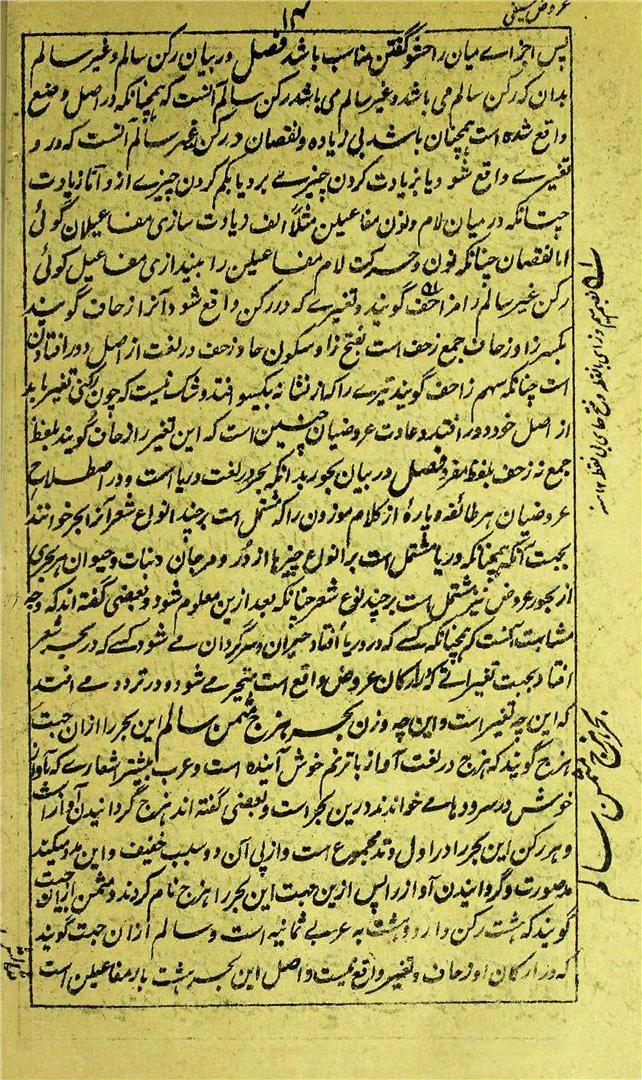 عروض سیفی
۱۴
پس اجزاے میان را حشو گفتن مناسب باشد فصل در بیان رکن سالم و غیر سالم
بدان که رکن سالم می باشد و غیر سالم می باشد رکن سالم آنست که همچنانکه در اصل وضع
واقع شده است همچنان باشد بی زیاده و نقصان و رکن غیر سالم آنست که درو
تغیرے واقع شود یا بزیادت کردن چیزے برو یا بکم کردن چیزے ازو آما زیادت
چنانکه در میان لام و نون مفاعیلن مثلاً الف زیادت سازی مفاعیلان گوئی
اما نقصان چنانکه نون و حرکت لام مفاعیلن را بیندازی مفاعیل گوئی
رکن غیر سالم را مزاحف گویند و تغیرے که در رکن واقع شود آنرا زحاف گویند
بکسر زا و زحاف جمع زحف است بفتح زا و سکون حا و زحف در لغت از اصل دور افتادن
است چنانکه سهم زاحف گویند تیرے را که از نشانه بیکسو افتد و شک نیست که چون رکنی تغیر یابد
از اصل خود دور افتد و عادت عروضیان چنین است که این تغیر را زحاف گویند بلفظ
جمع نه زحف بلفظ مفرد فصل در بیان بحور بدانکه بحر در لغت دریا است و در اصطلاح
عروضیان هر طائفه و پارهٔ از کلام موزون را که مشتمل است بر چند انواع شعر آنرا بحر خوانند
بجهت آنکه همچنانکه دریا مشتمل است بر انواع چیزها از در و مرجان و نبات و حیوان هر بحری
از بحور عروض نیز مشتمل است بر چند نوع شعر چنانکه بعد ازین معلوم شود و بعضی گفته اند که وجه
مشابهت آنست که همچنانکه کسے که در دریا افتاد حیران و سرگردان مے شود کسے که در بحر شعر
افتاد بجهت تغیراتے که در ارکان عروض واقع است متحیر مے شود و در تردد مے افتد
که این چه تغیر است و این چه وزن بحر هزج مثمن سالم این بحر را ازان جهت
هزج گویند که هزج در لغت آواز با ترنم خوش آینده است و عرب بیشتر اشعارے که بآواز
خوش در سرودها مے خوانند درین بحر است و بعضی گفته اند هزج گردانیدن آواز است
و هر رکن این بحر را در اول وتد مجموع است و از پی آن دو سبب خفیف و این مدد میکند
مد صورت و گردانیدن آواز را پس ازین جهت این بحر را هزج نام کردند و مثمن ازین جهت
گویند که هشت رکن دارد و هشت به عربی ثمانیه است و سالم ازان جهت گویند
که در ارکان او زحاف و تغیر واقع نیست و اصل این بحر هشت بار مفاعیلن است
بحر هزج مثمن سالم